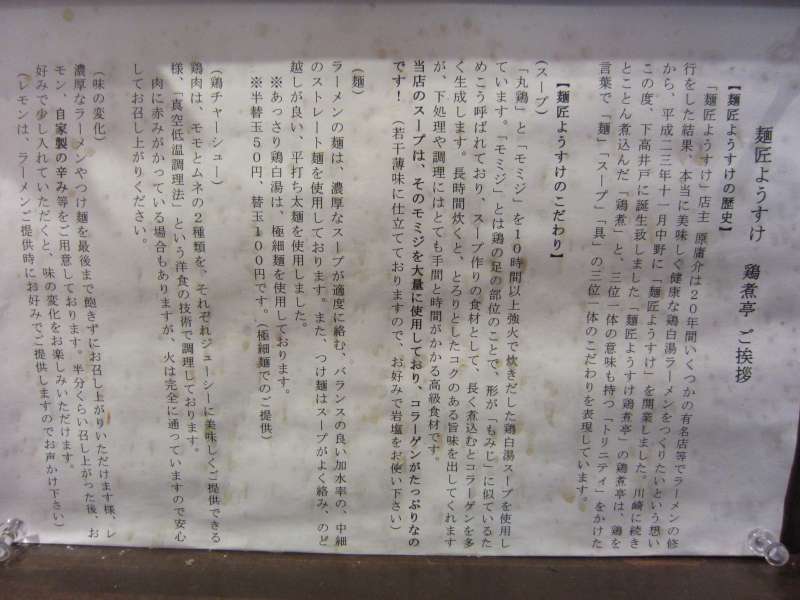 麺匠ようすけ　鶏煮亭　ご挨拶
【麺匠ようすけの歴史】
「麺匠ようすけ」店主　原庸介は２０年間いくつかの有名店等でラーメンの修
行をした結果、本当に美味しく健康な鶏白湯ラーメンをつくりたいという想い
から、平成二三年十一月中野に「麺匠ようすけ」を開業しました。川崎に続き
この度、下高井戸に誕生致しました「麺匠ようすけ鶏煮亭」の鶏煮亭は、鶏を
とことん煮込んだ「鶏煮」と、三位一体の意味も持つ「トリニティ」をかけた
言葉で「麺」「スープ」「具」の三位一体のこだわりを表現しています。
【麺匠ようすけのこだわり】
（スープ）
「丸鶏」と「モミジ」を１０時間以上強火で炊きだした鶏白湯スープを使用し
ています。「モミジ」とは鶏の足の部位のことで、形が「もみじ」に似ているた
めこう呼ばれており、スープ作りの食材として、長く煮込むとコラーゲンを多
く生成します。長時間炊くと、とろりとしたコクのある旨味を出してくれます
が、下処理や調理にはとても手間と時間がかかる高級食材です。
当店のスープは、そのモミジを大量に使用しており、コラーゲンがたっぷりなの
です！（若干薄味に仕立てておりますので、お好みで岩塩をお使い下さい）
（麺）
ラーメンの麺は、濃厚なスープが適度に絡む、バランスの良い加水率の、中細
のストレート麺を使用しております。また、つけ麺はスープがよく絡み、のど
越しが良い、平打ち太麺を使用しました。
※あっさり鶏白湯は、極細麺を使用しております。
※半替玉５０円、替玉１００円です。（極細麺でのご提供）
（鶏チャーシュー）
鶏肉は、モモとムネの２種類を、それぞれジューシーに美味しくご提供できる
様、「真空低温調理法」という洋食の技術で調理しております。
肉に赤みがかっている場合もありますが、火は完全に通っていますので安心
してお召し上がりください。
（味の変化）
濃厚なラーメンやつけ麺を最後まで飽きずにお召し上がりいただけます様、レ
モン、自家製の辛み等をご用意しております。半分くらい召し上がった後、お
好みで少し入れていただくと、味の変化をお楽しみいただけます。
（レモンは、ラーメンご提供時にお好みでご提供しますのでお声かけ下さい）